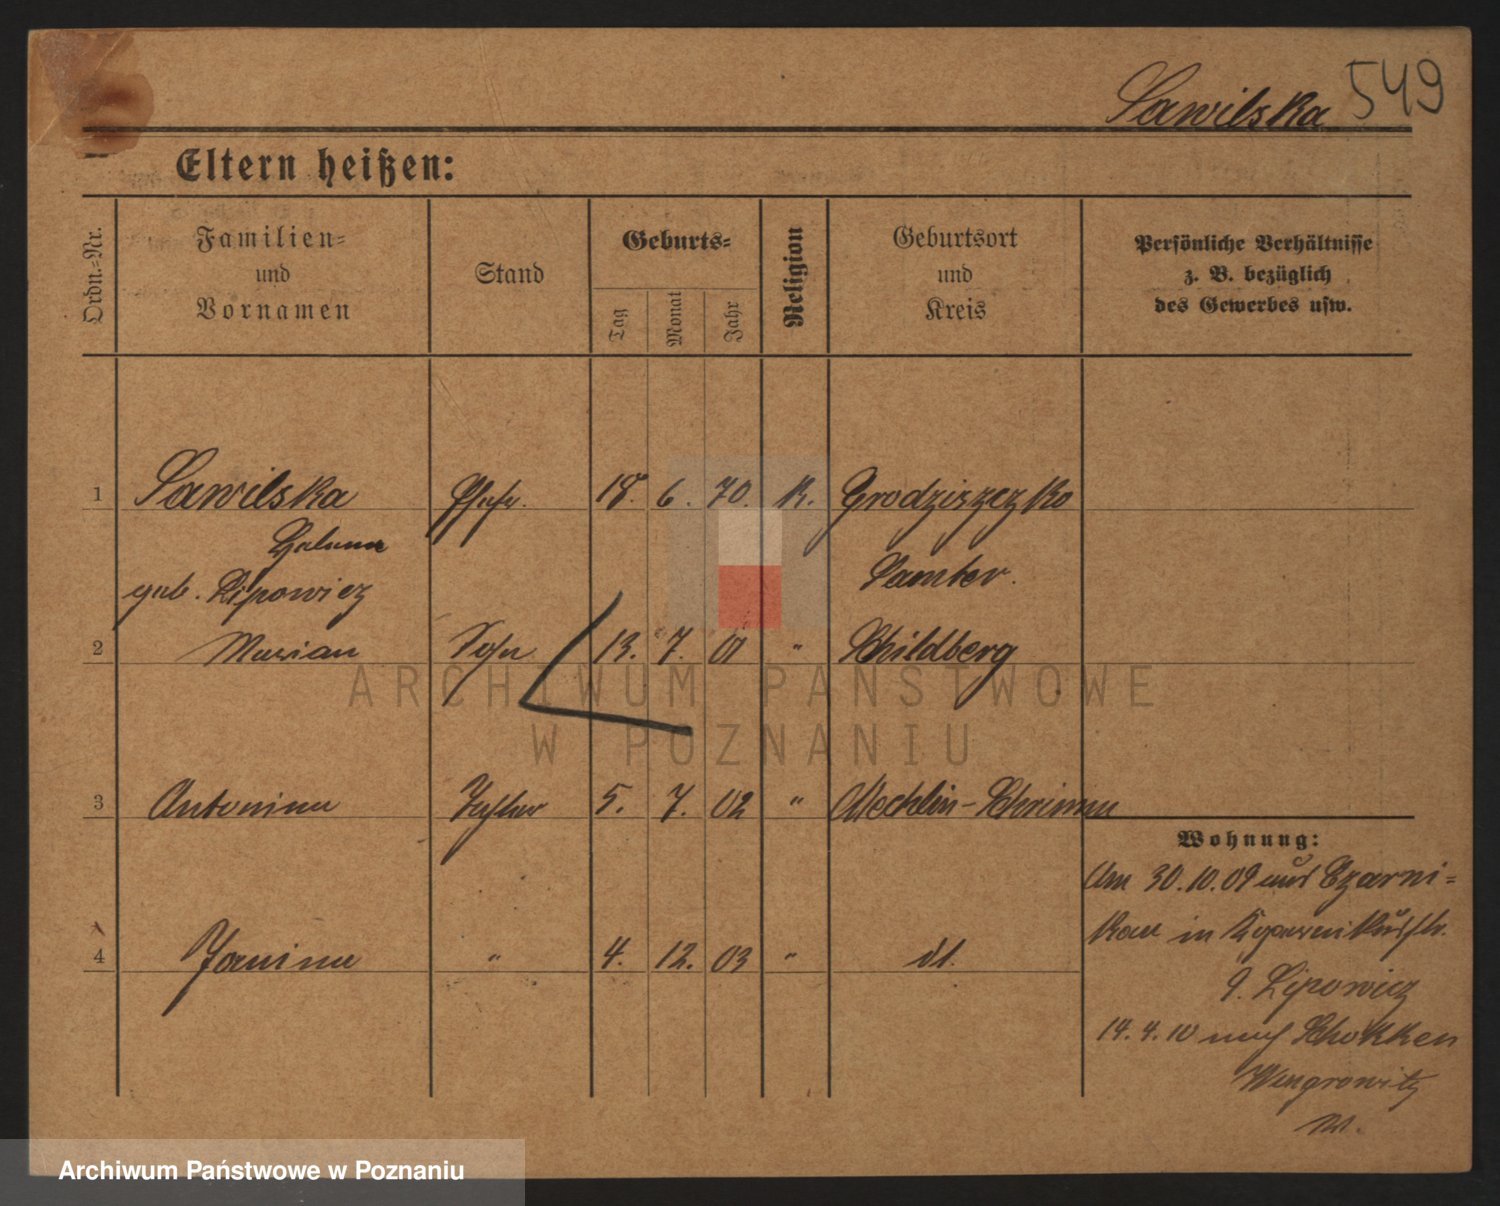 Sawilska 549
Eltern heißen:
Ordn.=Nr.
Familien=
und
Vornamen
Stand
Geburts=
Tag
Monat
Jahr
Religion
Geburtsort
und
Kreis
Persönliche Verhältnisse
z. B. bezüglich
des Gewerbes usw.
1 Sawilska Ehefr. 18. 6. 70. K. Grodziszczko
Helena
Samter.
geb. Lipowicz
2 Marian Sohn 13. 7. 01 " Schildberg
ARCHIWUM PAŃSTWOWE
W POZNANIU
3 Antonina Tochter 5. 7. 02 " Mechlin-Schrimm
Wohnung:
Am 30.10.09 aus Czarni=
kau in
4 Janina " 4. 12. 03 " dt.
Lipowicz
14.4.10 nach Schokken
Wongrowitz
Archiwum Państwowe w Poznaniu